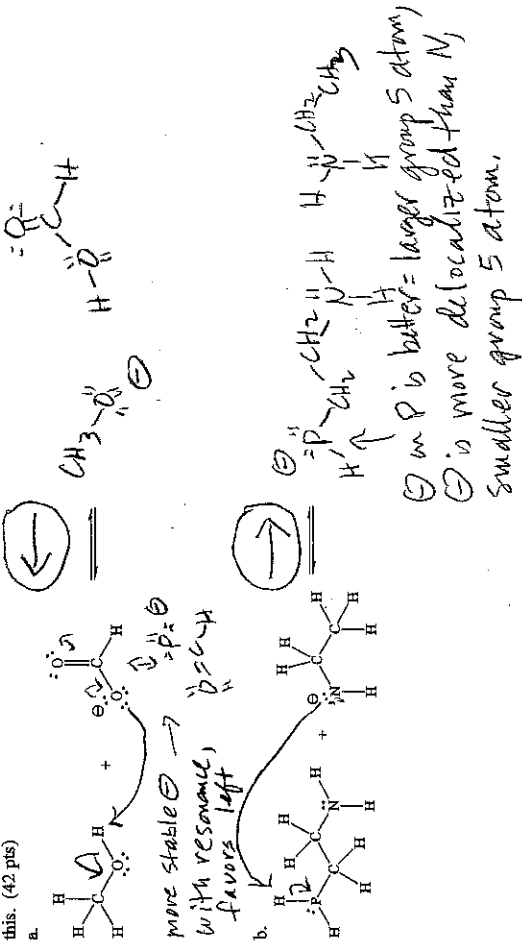 this. (42 pts)
a.
H H H C H O H + O C H O ⊖
CH3 - O ⊖
H - O C H O
more stable ⊖ →
with resonance,
favors left
O = C - H
O ⊖
b.
H H P H C H H C H H N H H + ⊖ N H C H H C H H H
⊖ P H CH2 - CH2 N - H H
H N H CH2 CH3
⊖ on P is better = larger group 5 atom,
⊖ is more delocalized than N,
smaller group 5 atom.